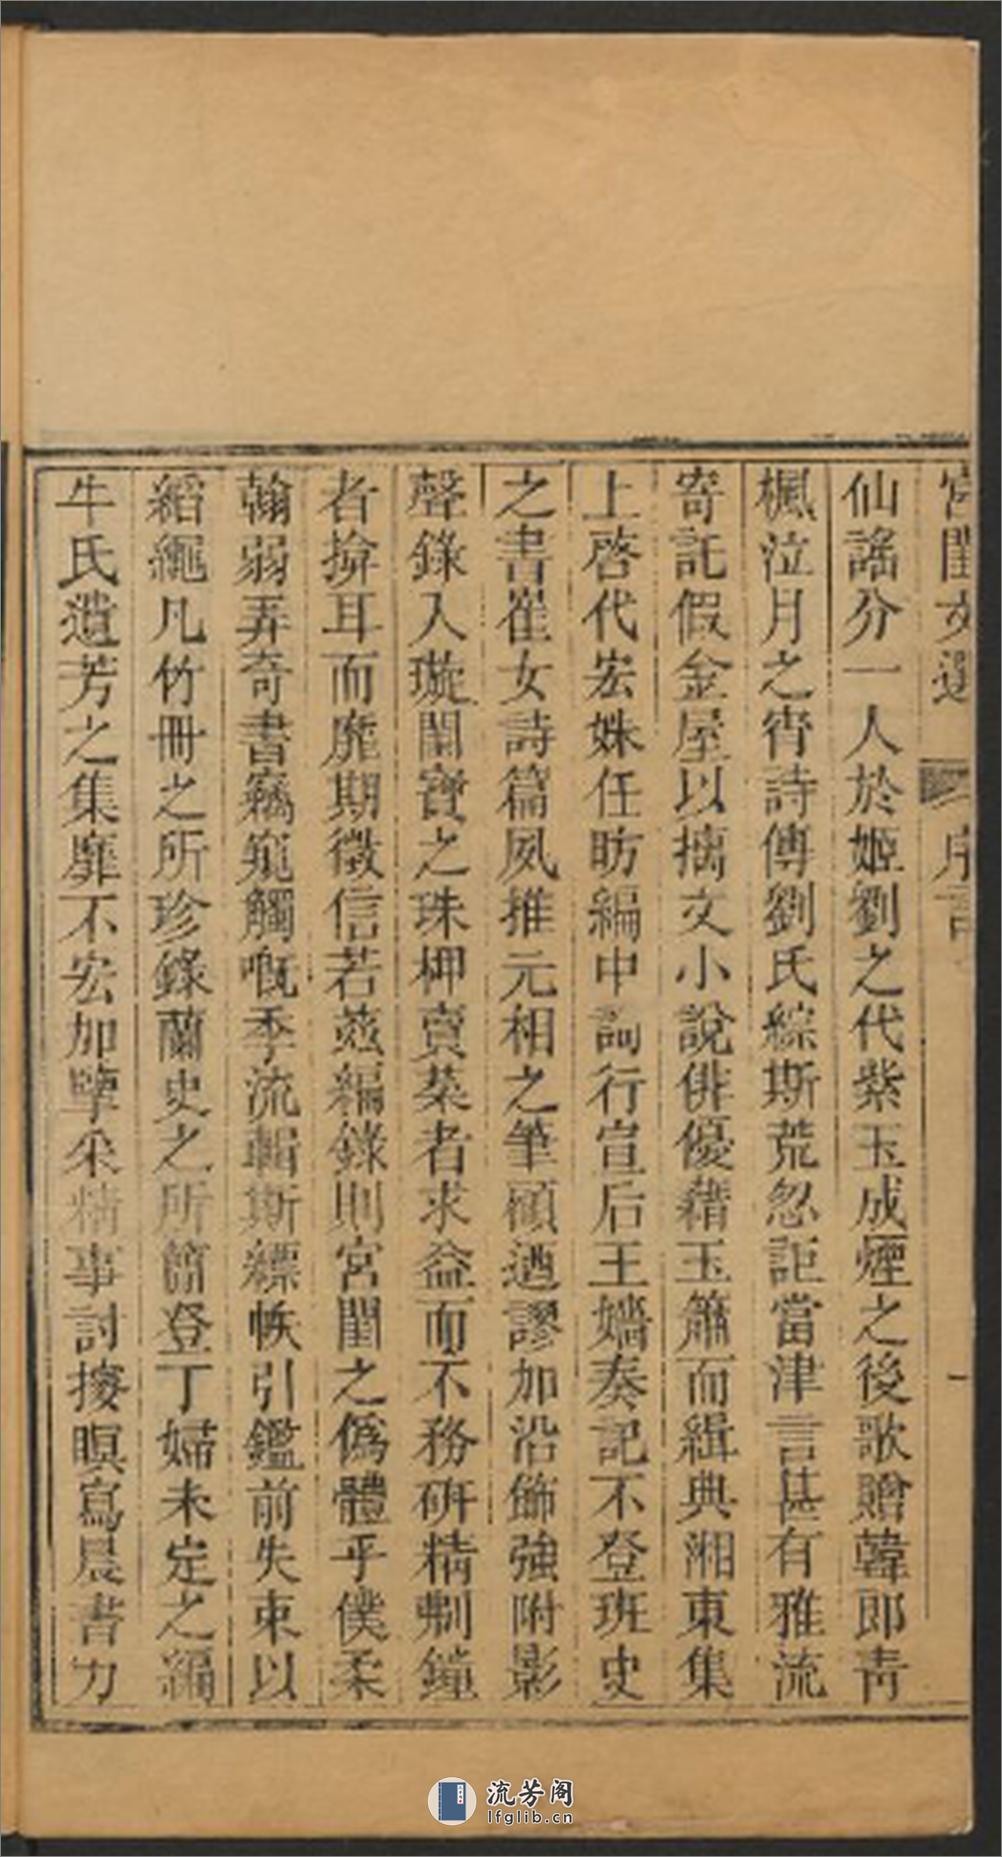 宮閨文選 序言 一
仙謠分一人於姬劉之代紫玉成煙之後歌贈韓郎青
楓泣月之宵詩傳劉氏綜斯荒忽詎當津言甚有雅流
寄託假金屋以摛文小說俳優藉玉簫而緝典湘東集
上啓代宏姝任昉編中詞行宣后王嬙奏記不登班史
之書崔女詩篇夙推元相之筆顧迺謬加沿飾強附影
聲錄入璇閨寶之珠柙賣菜者求益而不務硏精劘鐘
者揜耳而靡期徵信若茲編錄則宮閨之僞體乎僕柔
翰弱弄奇書竊窺觸嘅季流輯斯縹帙引鑑前失束以
紹繩凡竹冊之所珍錄蘭史之所簡登丁婦未定之編
牛氏遺芳之集靡不宏加擥采精事討擾暝寫晨書力
流芳阁
lfglib.cn